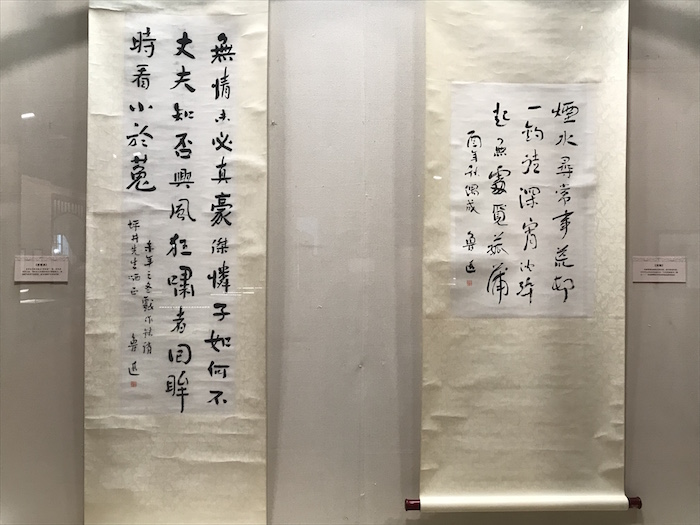 煙水尋常事荒邨
一釣徒深宵沉醉
起無處覓菰蒲
酉年秋偶成 魯迅
無情未必真豪傑憐子如何不
丈夫知否興風狂嘯者回眸
時看小於菟
未年之冬戲作錄請
坪井先生哂正 魯迅